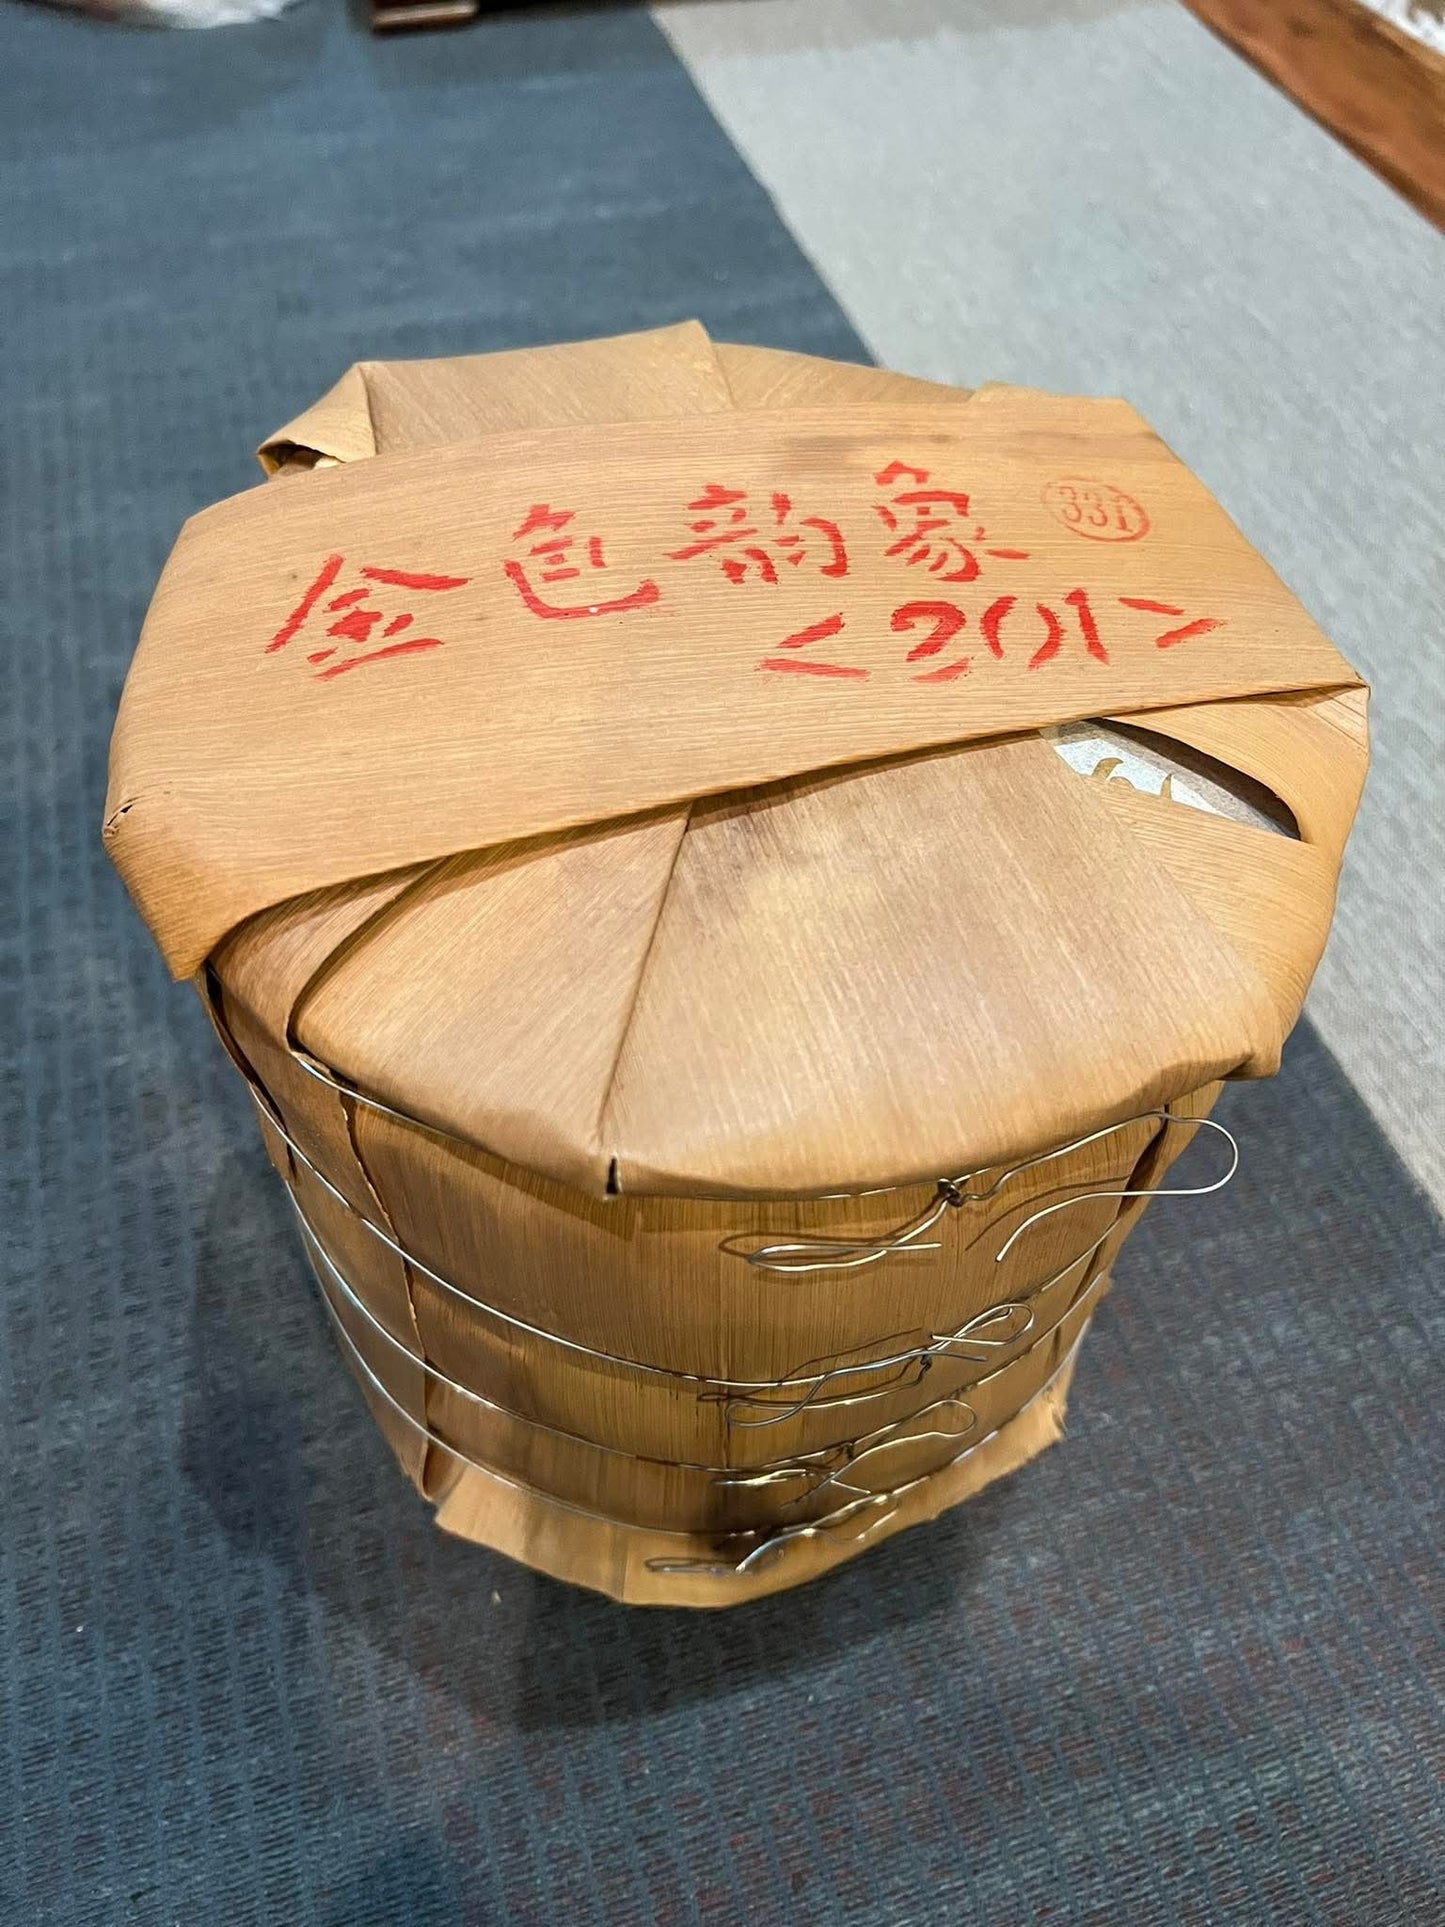 金色韵象
331
<201>